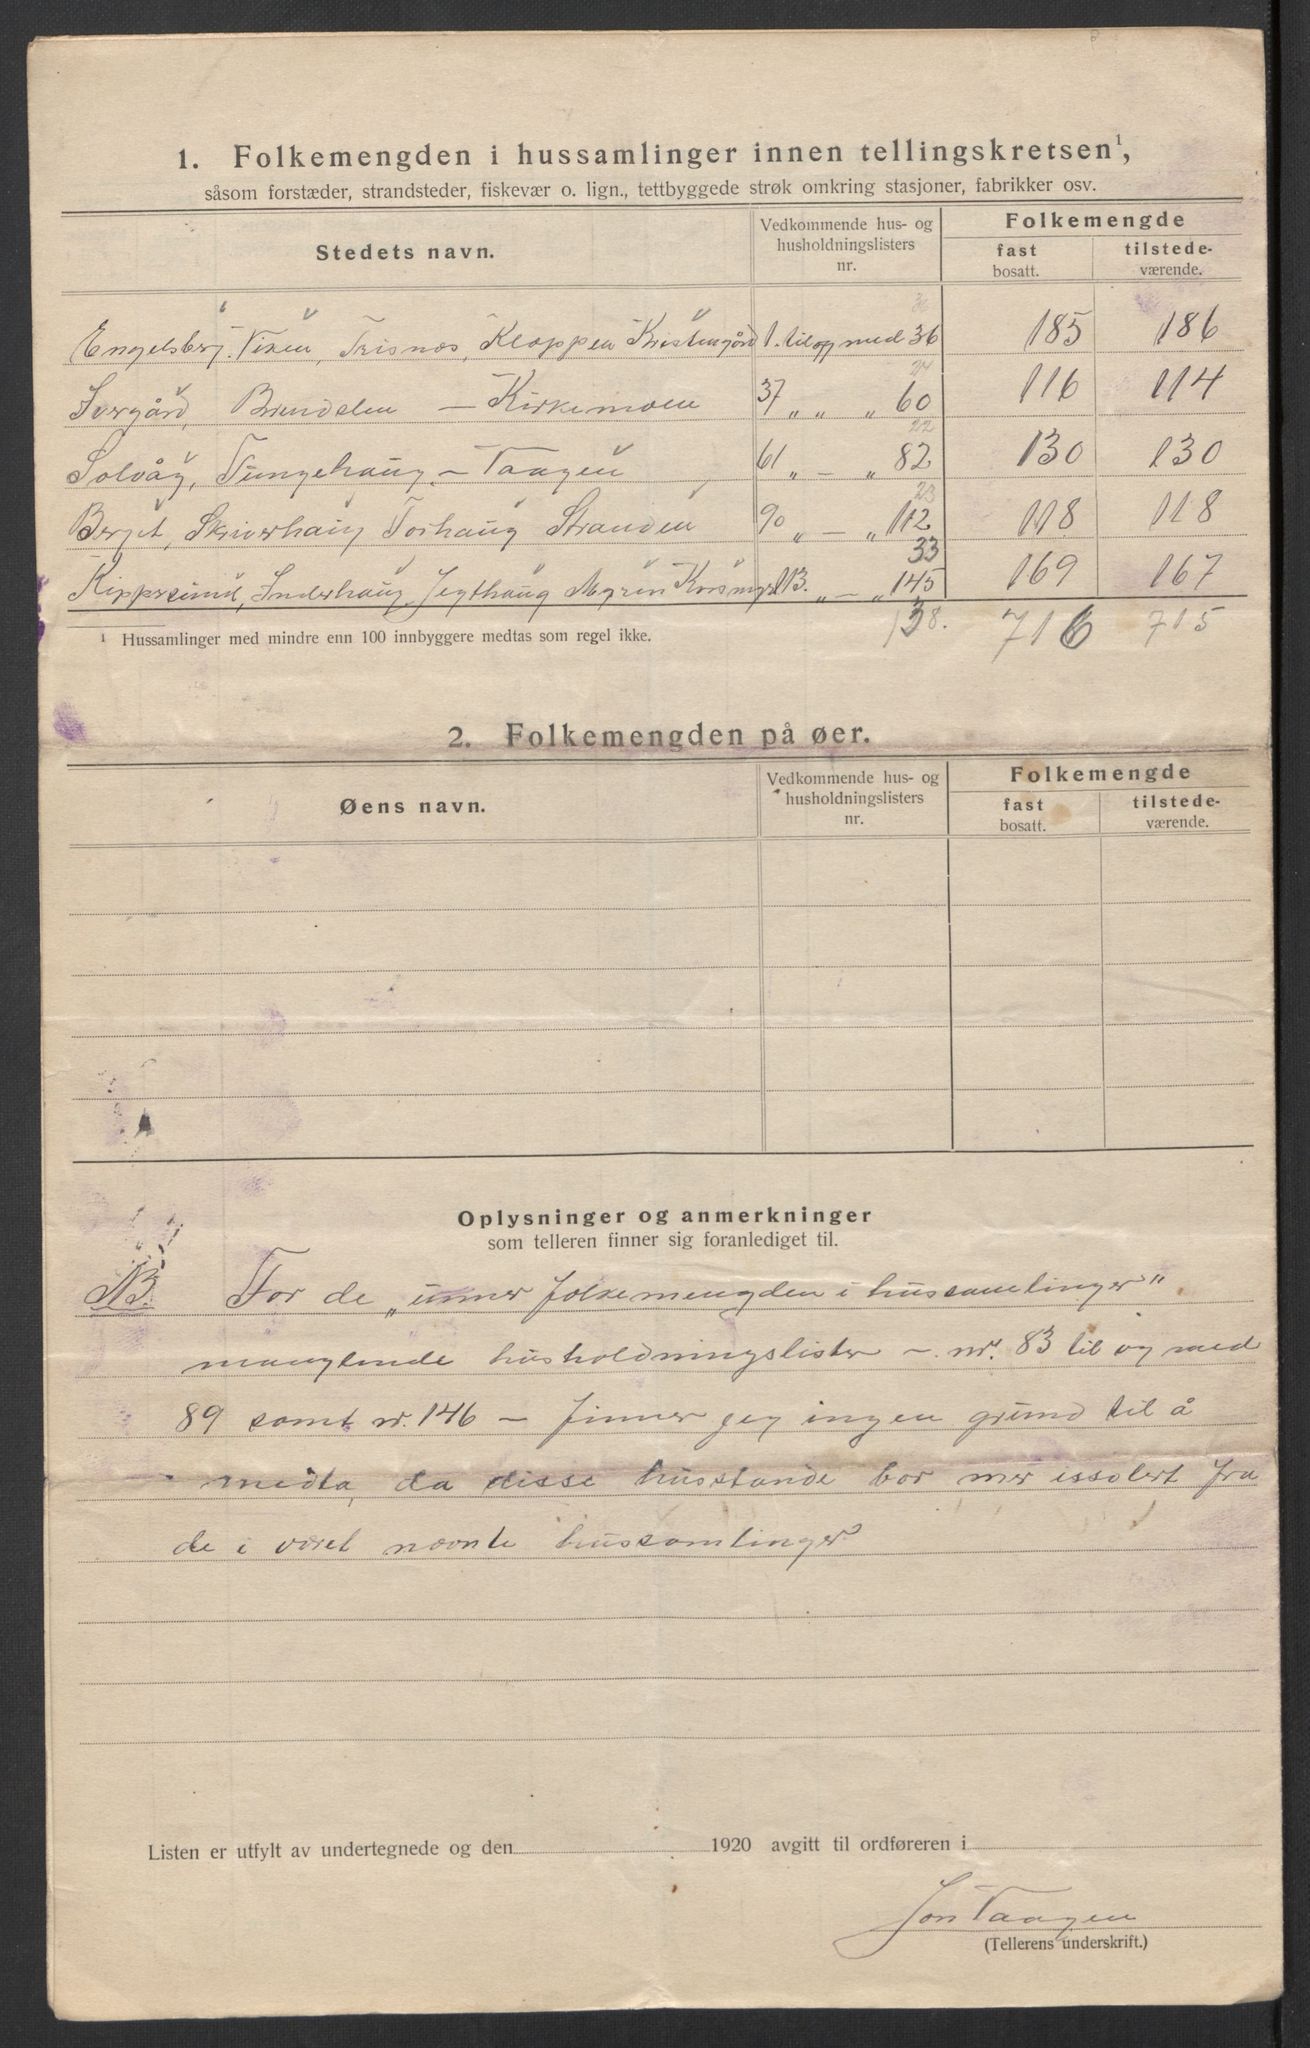 1. Folkemengden i hussamlinger innen tellingskretsen¹,
såsom forstæder, strandsteder, fiskevær o. lign., tettbyggede strøk omkring stasjoner, fabrikker osv.
Stedets navn. Vedkommende hus- og husholdningslisters nr. Folkemengde fast bosatt. tilstede-værende.
36
Engelsberg. Viken, Trisnæs, Kloppen Kristengård 1. til og med 36 185 186
24
Ivergård, Brendslen — Kirkemoen 37 „ „ „ 60 116 114
22
Solvåg, Tungehaug – Vaagen 61 „ — „ 82 130 130
23
Berget, Skriverhaug Torhaug Stranden 90 „ — „ 112 118 118
33
Inderhaug, Jegthaug Myren „ — „ 145 169 167
¹ Hussamlinger med mindre enn 100 innbyggere medtas som regel ikke. 138. 716 715
2. Folkemengden på øer.
Øens navn. Vedkommende hus- og husholdningslisters nr. Folkemengde fast bosatt. tilstede-værende.
Oplysninger og anmerkninger
som telleren finner sig foranlediget til.
NB. For de „unner folkemengden i hussamlinger"
manglende husholdningslister – nr. 83 til og med
89 samt nr. 146 – finner jeg ingen grund til å
medta, da disse husstande bor mer issolert fra
de i været nævnte hussamlinger
Listen er utfylt av undertegnede og den 1920 avgitt til ordføreren i
Jon Vaagen
(Tellerens underskrift.)